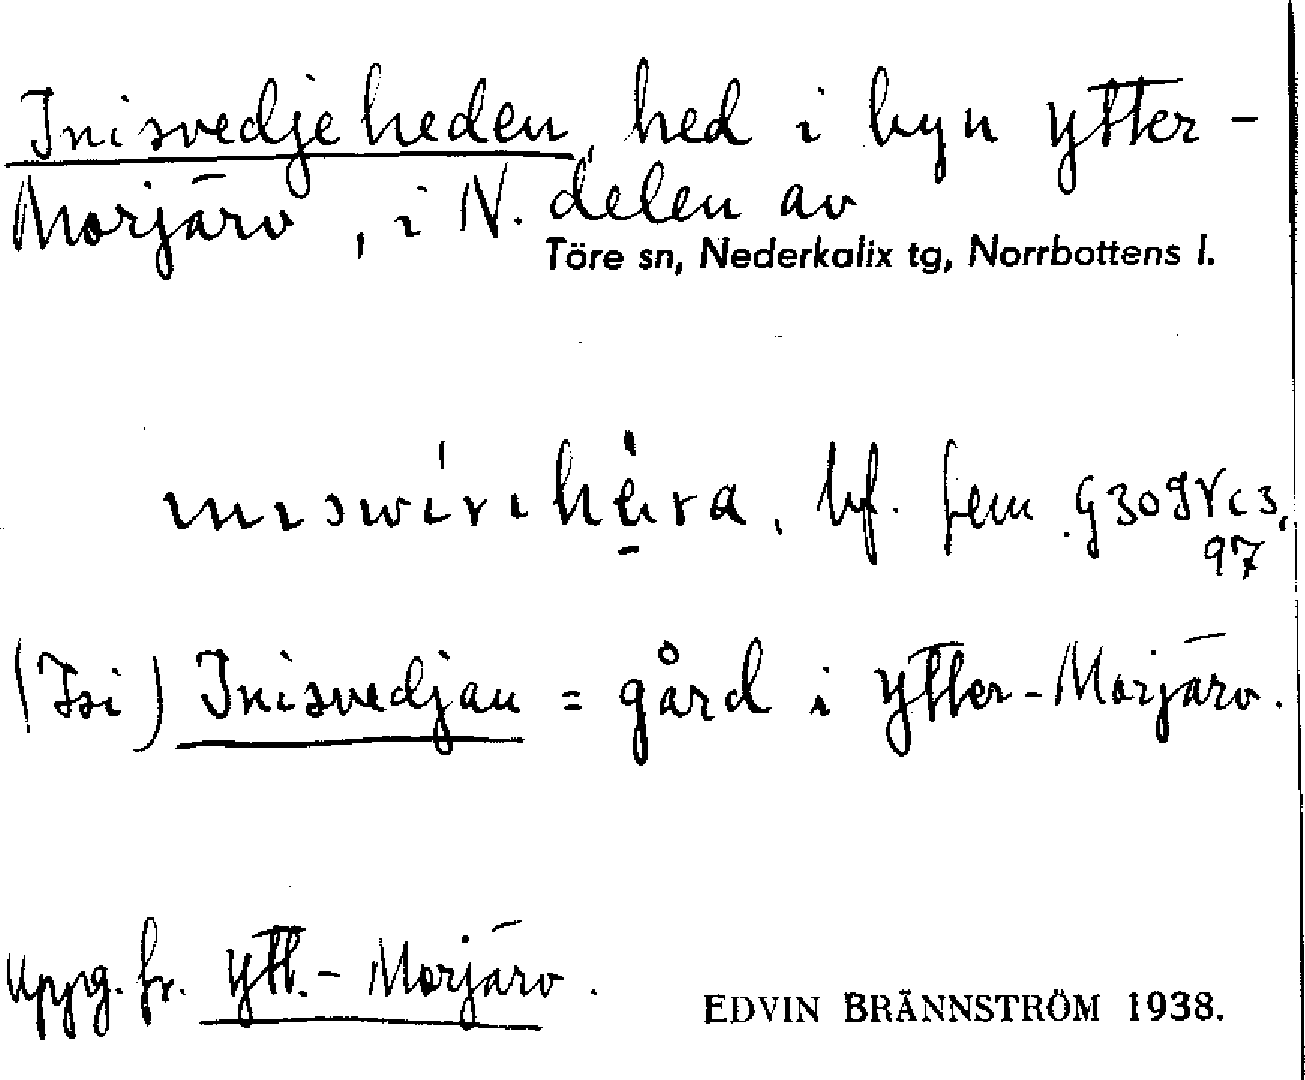 Inisvedjeheden, hed i byn Ytter-
Morjärv, i N. delen av
Töre sn, Nederkalix tg, Norrbottens l.
bf. fem.
97
Inisvedjan = gård i Ytter-Morjärv.
Uppg. fr. Ytt.-Morjärv.
EDVIN BRÄNNSTRÖM 1938.